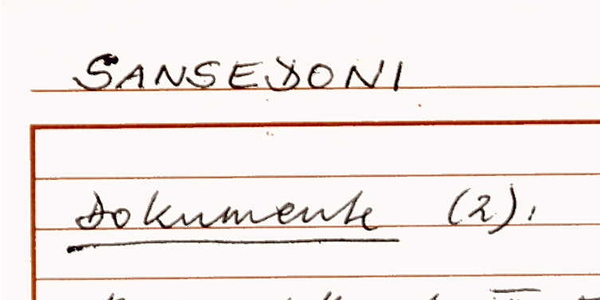 SANSEDONI
Dokumente (2):